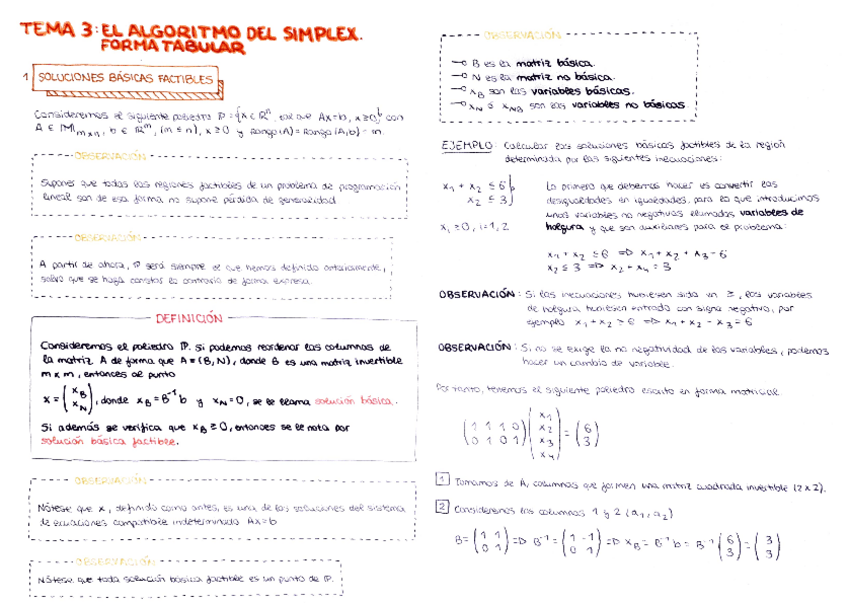 TEMA 3: EL ALGORITMO DEL SIMPLEX.
FORMA TABULAR
1 SOLUCIONES BÁSICAS FACTIBLES
Consideremos el siguiente poliedro P = {x ∈ ℝⁿ, tal que Ax=b, x≥0} con
A ∈ M m×n, b ∈ ℝᵐ, (m ≤ n), x ≥ 0 y Rango(A) = Rango(A,b) = m.
OBSERVACIÓN
Suponer que todas las regiones factibles de un problema de programación
lineal son de esa forma no supone pérdida de generalidad.
OBSERVACIÓN
A partir de ahora, P será siempre el que hemos definido anteriormente,
salvo que se haga constar lo contrario de forma expresa.
DEFINICIÓN
Consideremos el poliedro P. Si podemos reordenar las columnas de
la matriz A de forma que A = (B, N), donde B es una matriz invertible
m × m, entonces al punto
x = (x_B x_N), donde x_B = B⁻¹b y x_N = 0, se le llama solución básica.
Si además se verifica que x_B ≥ 0, entonces se le nota por
solución básica factible.
OBSERVACIÓN
Nótese que x, definido como antes, es una de las soluciones del sistema
de ecuaciones compatible indeterminado Ax=b
OBSERVACIÓN
Nótese que toda solución básica factible es un punto de P.
OBSERVACIÓN
B es la matriz básica.
N es la matriz no básica.
x_B son las variables básicas.
x_N ó x_NB son las variables no básicas.
EJEMPLO: Calcular las soluciones básicas factibles de la región
determinada por las siguientes inecuaciones:
x₁ + x₂ ≤ 6
x₂ ≤ 3
x_i ≥ 0, i=1,2
Lo primero que debemos hacer es convertir las
desigualdades en igualdades, para lo que introducimos
unas variables no negativas llamadas variables de
holgura y que son auxiliares para el problema:
x₁ + x₂ ≤ 6 ⇒ x₁ + x₂ + x₃ = 6
x₂ ≤ 3 ⇒ x₂ + x₄ = 3
OBSERVACIÓN: Si las inecuaciones hubiesen sido un ≥, las variables
de holgura hubiesen entrado con signo negativo, por
ejemplo x₁ + x₂ ≥ 6 ⇒ x₁ + x₂ - x₃ = 6
OBSERVACIÓN: Si no se exige la no negatividad de las variables, podemos
hacer un cambio de variable.
Por tanto, tenemos el siguiente poliedro escrito en forma matricial
(1 1 1 0) (x₁) = (6)
(0 1 0 1) (x₂) (3)
(x₃)
(x₄)
1 Tomamos de A, columnas que formen una matriz cuadrada invertible (2×2).
2 Consideremos las columnas 1 y 2 (a₁, a₂)
B = (1 1 / 0 1) ⇒ B⁻¹ = (1 -1 / 0 1) ⇒ x_B = B⁻¹b = B⁻¹ (6 / 3) = (3 / 3)